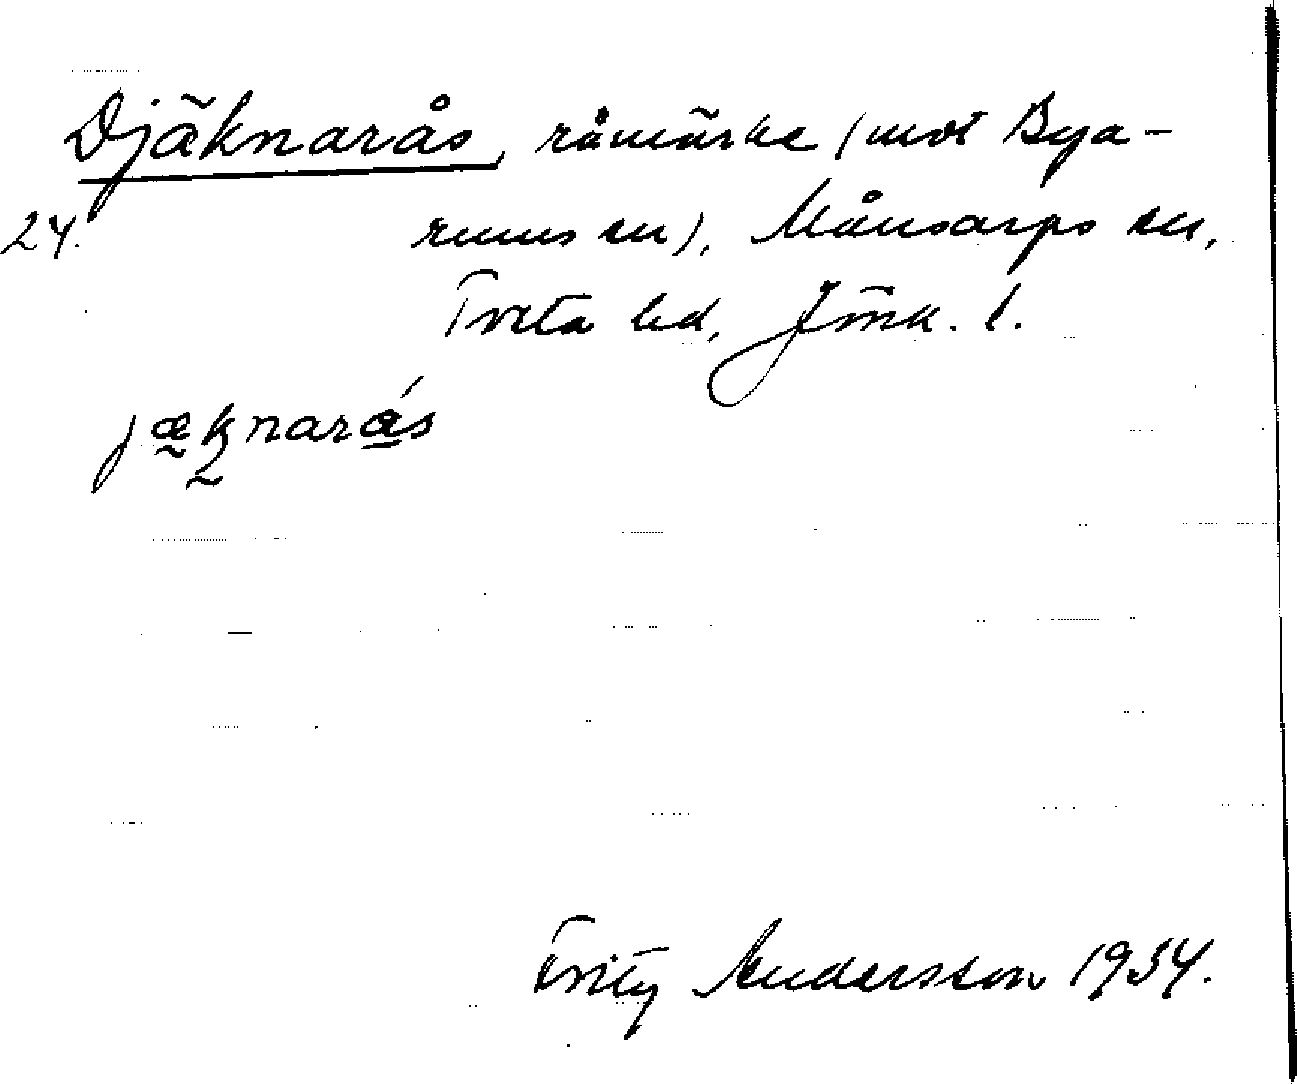 Djäknarås, råmärke (mot Bya-
24. rums sn), Månsarps sn,
Tveta hd, Jönk. l.
jæknarås
Fritz Andersson 1934.